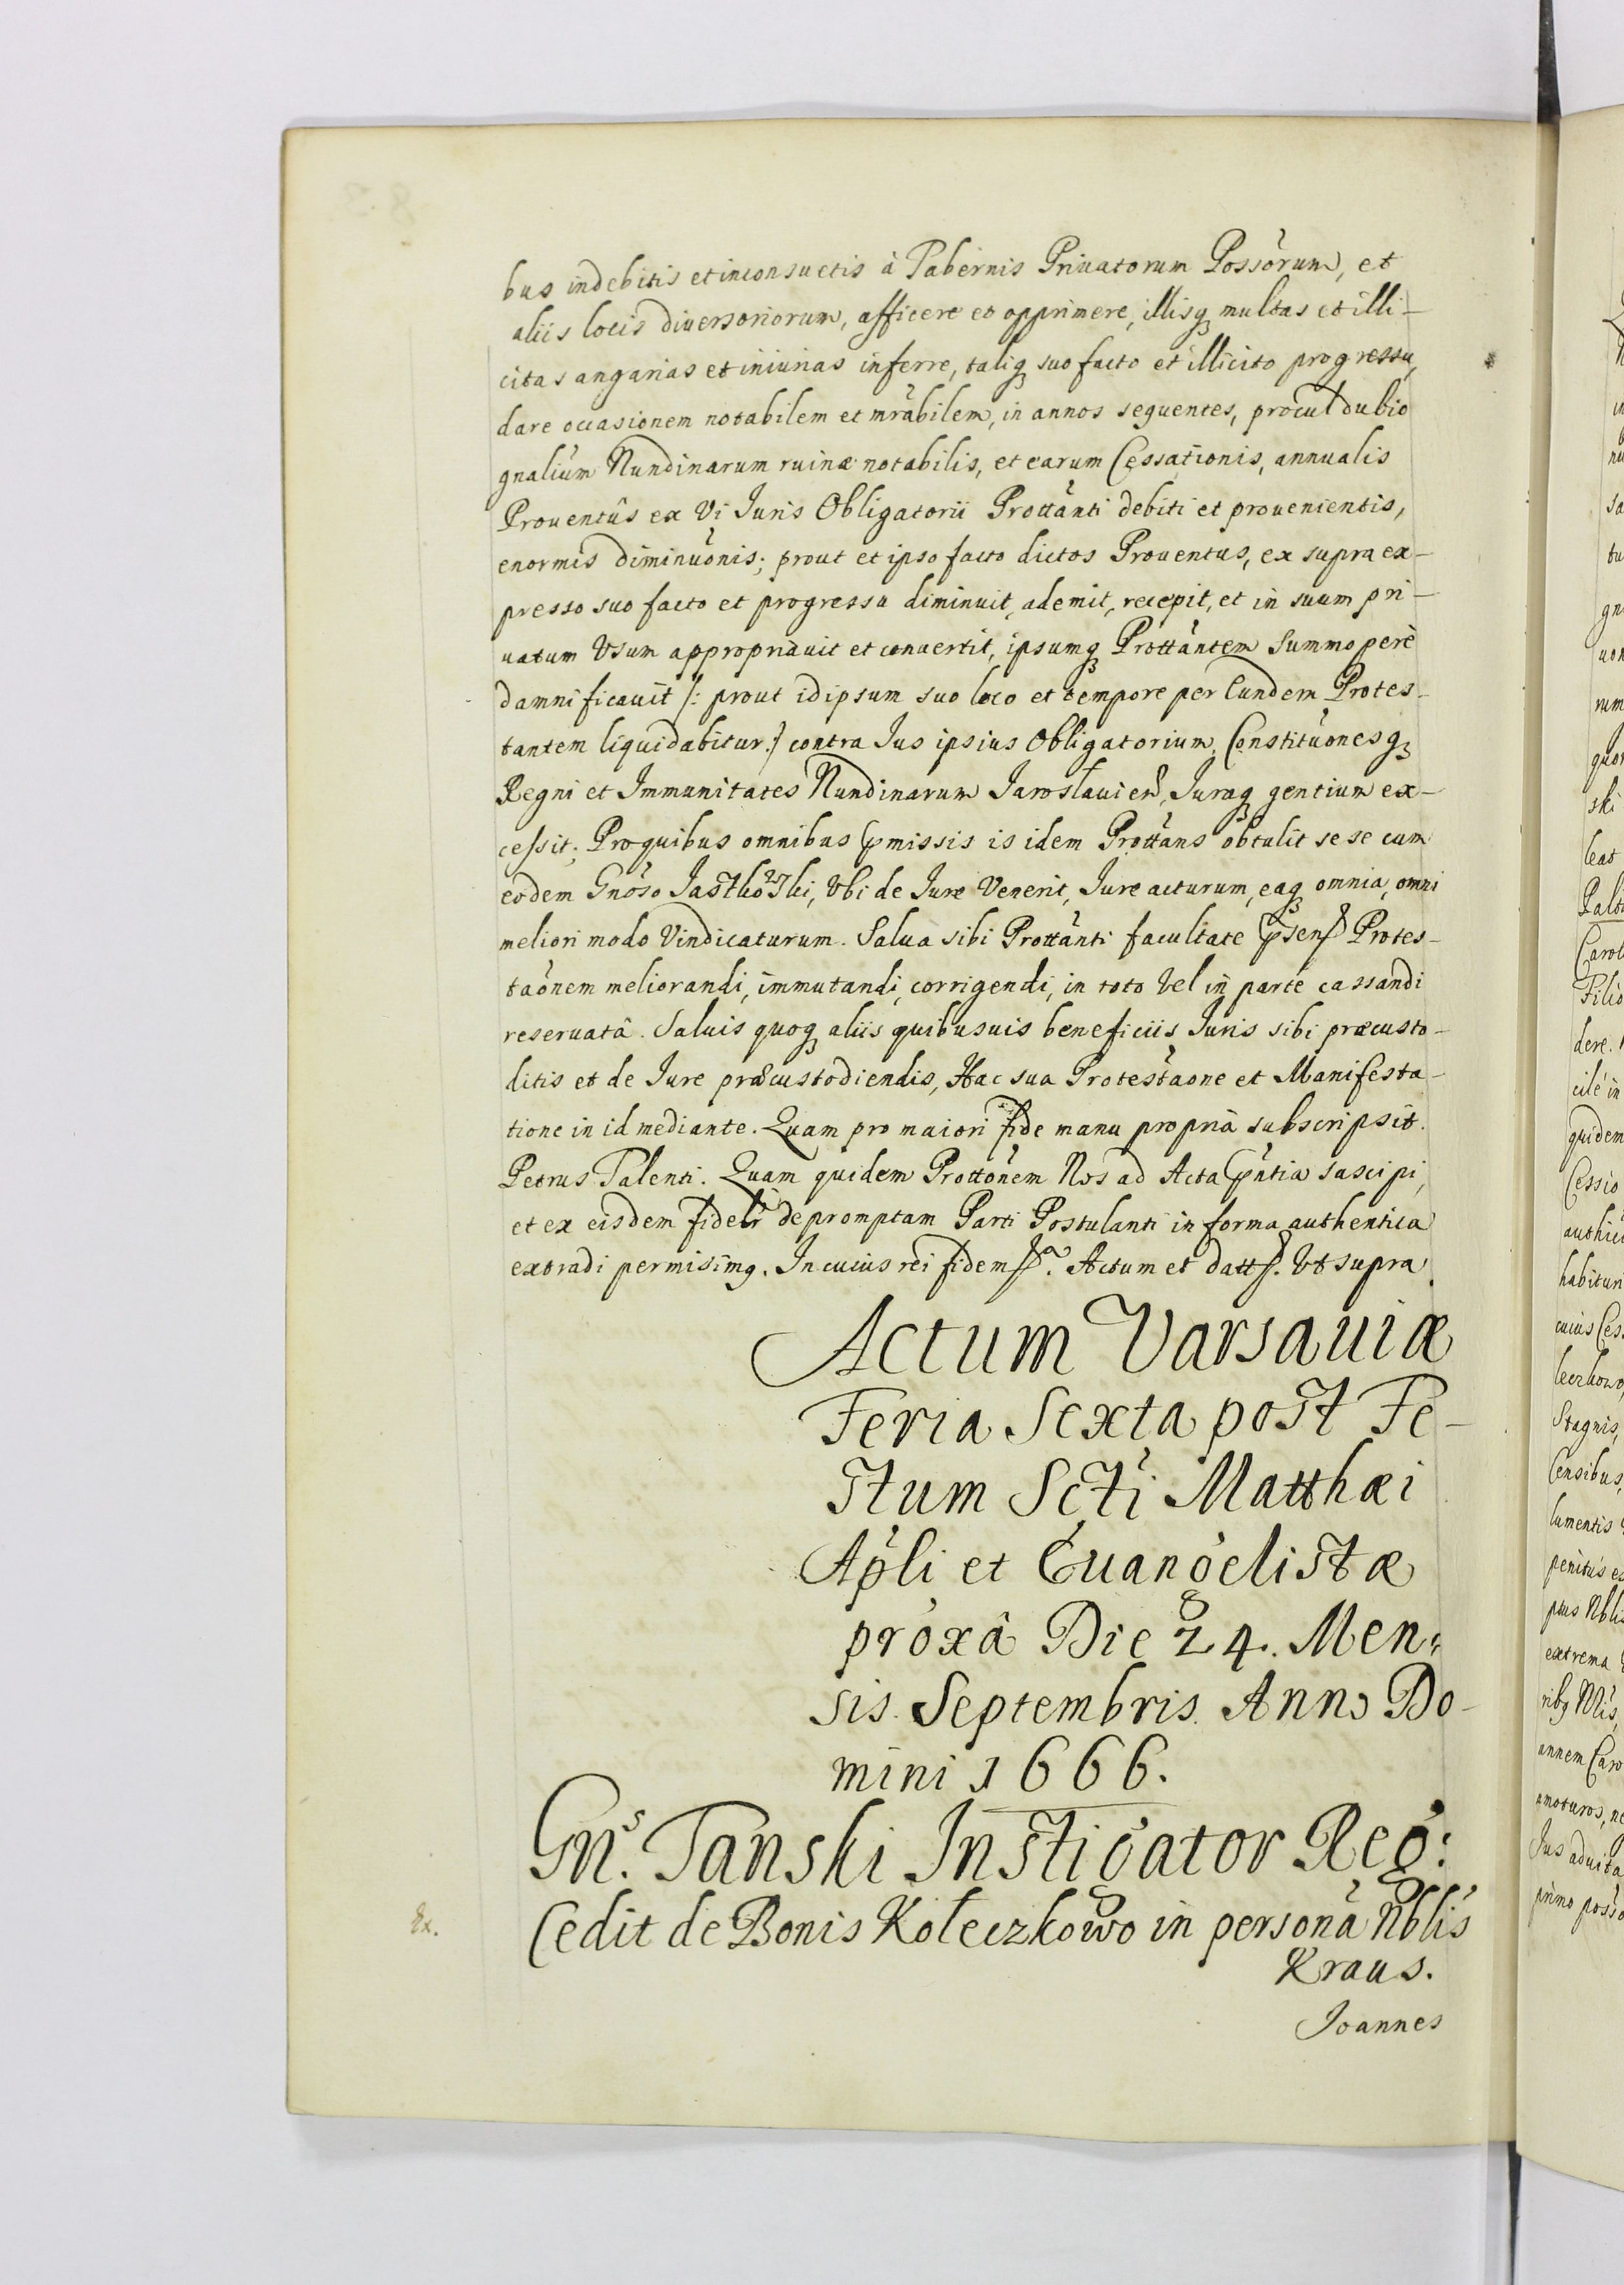 bus indebitis et inconsuetis à Tabernis Priuatorum Possorum, et
aliis locis diuersoriorum, afficere et opprimere, illisq multas et illi-
citas angarias et iniurias inferre, taliq suo facto et illicito progressu,
dare occasionem notabilem et mrabilem, in annos sequentes, procul dubio
gnalium Nundinarum ruinæ notabilis, et earum Cessationis, annualis
Prouentûs ex Vi Iuris Obligatorii Prottanti debiti et prouenientis,
enormis diminuonis; prout et ipso facto dictos Prouentus, ex supra ex-
presso suo facto et progressu diminuit, ademit, recepit, et in suum pri-
uatum Vsum appropriauit et conuertit, ipsumq Prottantem Summoperè
damnificauit /: prout idipsum suo loco et tempore per Eundem Protes-
tantem liquidabitur :/ contra Ius ipsius Obligatorium, Constituonesq
Regni et Immunitates Nundinarum Iaroslauien, Iuraq gentium ex-
cessit; Pro quibus omnibus pmissis is idem Prottans obtulit se se cum
eodem Gnoso Jastkowski, Vbi de Iure Venerit, Iure acturum, eaq omnia, omni
meliori modo Vindicaturum. Saluâ sibi Prottanti facultate psens Protes-
taonem meliorandi, immutandi, corrigendi, in toto Vel in parte cassandi
reseruatâ. Saluis quoq aliis quibusuis beneficiis Iuris sibi præcusto-
ditis et de Iure præcustodiendis, Hac sua Protestaone et Manifesta-
tione in id mediante. Quam pro maiori fide manu propriâ subscripsit.
Petrus Talenti. Quam quidem Prottonem Nos ad Acta pntia suscipi,
et ex eisdem fidelr depromptam Parti Postulanti in forma authentica
extradi permisimq. In cuius rei fidem. Actum et datt. Vt supra.
Actum Varsauiæ
Feria Sexta post Fe-
stum Scti Matthæi
Apli et Euangelistæ
proxâ Die 24. Men-
sis Septembris Anno Do-
mini 1666.
Gns. Tanski Instigator Reg:
Ex. Cedit de Bonis Koleczkowo in personâ Nblis
Kraus.
Joannes